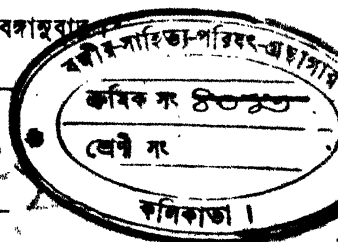 বঙ্গানুবাদ
বঙ্গীয়-সাহিত্য-পরিষৎ-গ্রন্থাগার
ক্রমিক নং
শ্রেণী নং
কলিকাতা ।